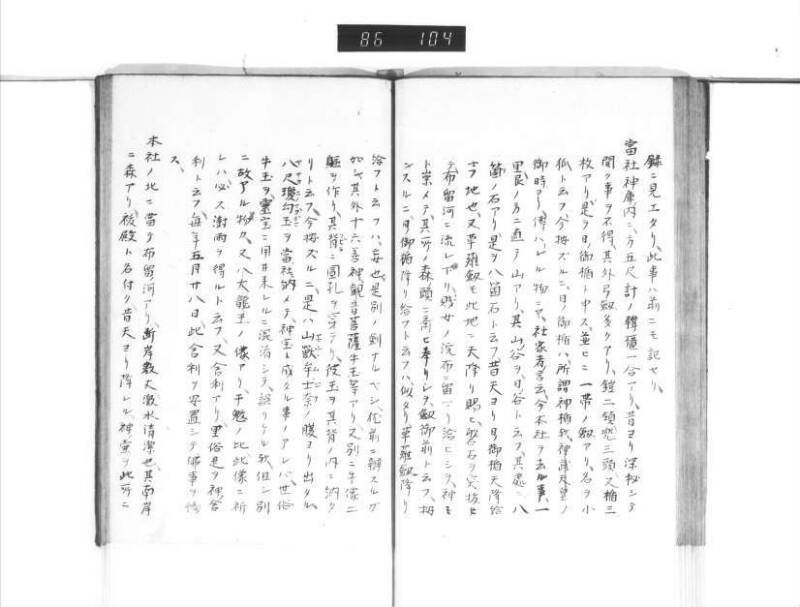 86 104
録ニ見エタリ、此事ハ前ニモ記セリ、
當社神庫内ニ、方五尺計ノ韓櫃一合アリ、昔ヨリ深秘シテ
開ク事ヲ不得、其外弓劔多クアリ、鎧二領兜三頭又楯三
枚アリ、是ヲ日ノ御楯ト申ス、並ヒニ一帯ノ劔アリ、名ヲ小
狐ト云フ、今按ズルニ、日ノ御楯ハ、所謂神楯
御時ヨリ傳ハレル物ニヤ、社家者云、今本社ヲ去ル事、一
里艮ノ方ニ直テ山アリ、其山谷ヲ日谷ト云フ、其處ニ八
箇ノ石アリ、是ヲ八箇石ト云フ、昔天ヨリ日御楯天降給
フ地也、又草薙劔モ此地ニ天降リ賜ヒ、磐石ヲ突抜ヒ
テ布留河ニ流レ下リ、賤女ノ浣布ニ留マリ給ヒシヲ、神ト
ト崇メテ、其所ノ森頭ニ斎ヒ奉リシヲ、劔御前ト云フ、按
ンスルニ、日御楯降リ給フト云フハ、似タリ、草薙劔降リ
給フト云フハ、妄也、是別ノ劔ナルベシ、化前ニ辨スルグ
如シ、其外十六善神観音菩薩牛玉等アリ、又別ニ牛像二
躯ヲ作リ、其背ニ圓孔ヲ穿テリ、彼玉ヲ其背ノ内ニ納タ
リト云フ、今按ズルニ、是ハ山獸牟士奈ノ腹ヨリ出タル、
八尺瓊勾玉ヲ當社ニ納メテ、神宝ト成タル事ノアレバ、世俗
牛玉ヲ、霊宝ニ用ヰ来レルニ混淆シテ、誤リケル欤、但シ別
ニ故アル物欤、又八大龍王ノ像アリ、干魃ノ比此像ニ祈
レハ必ス澍雨ヲ得ルト云フ、又舎利アリ、里俗是ヲ神舎
利ト云フ、毎年五月廿八日、此舎利ヲ安置シテ佛事ヲ脩
ス、
本社ノ北ニ當リ布留河アリ、断岸数丈激水清潔也、其南岸
ニ森アリ、祓殿ト名付ク、昔天ヨリ降レル、神宝ヲ此所ニ